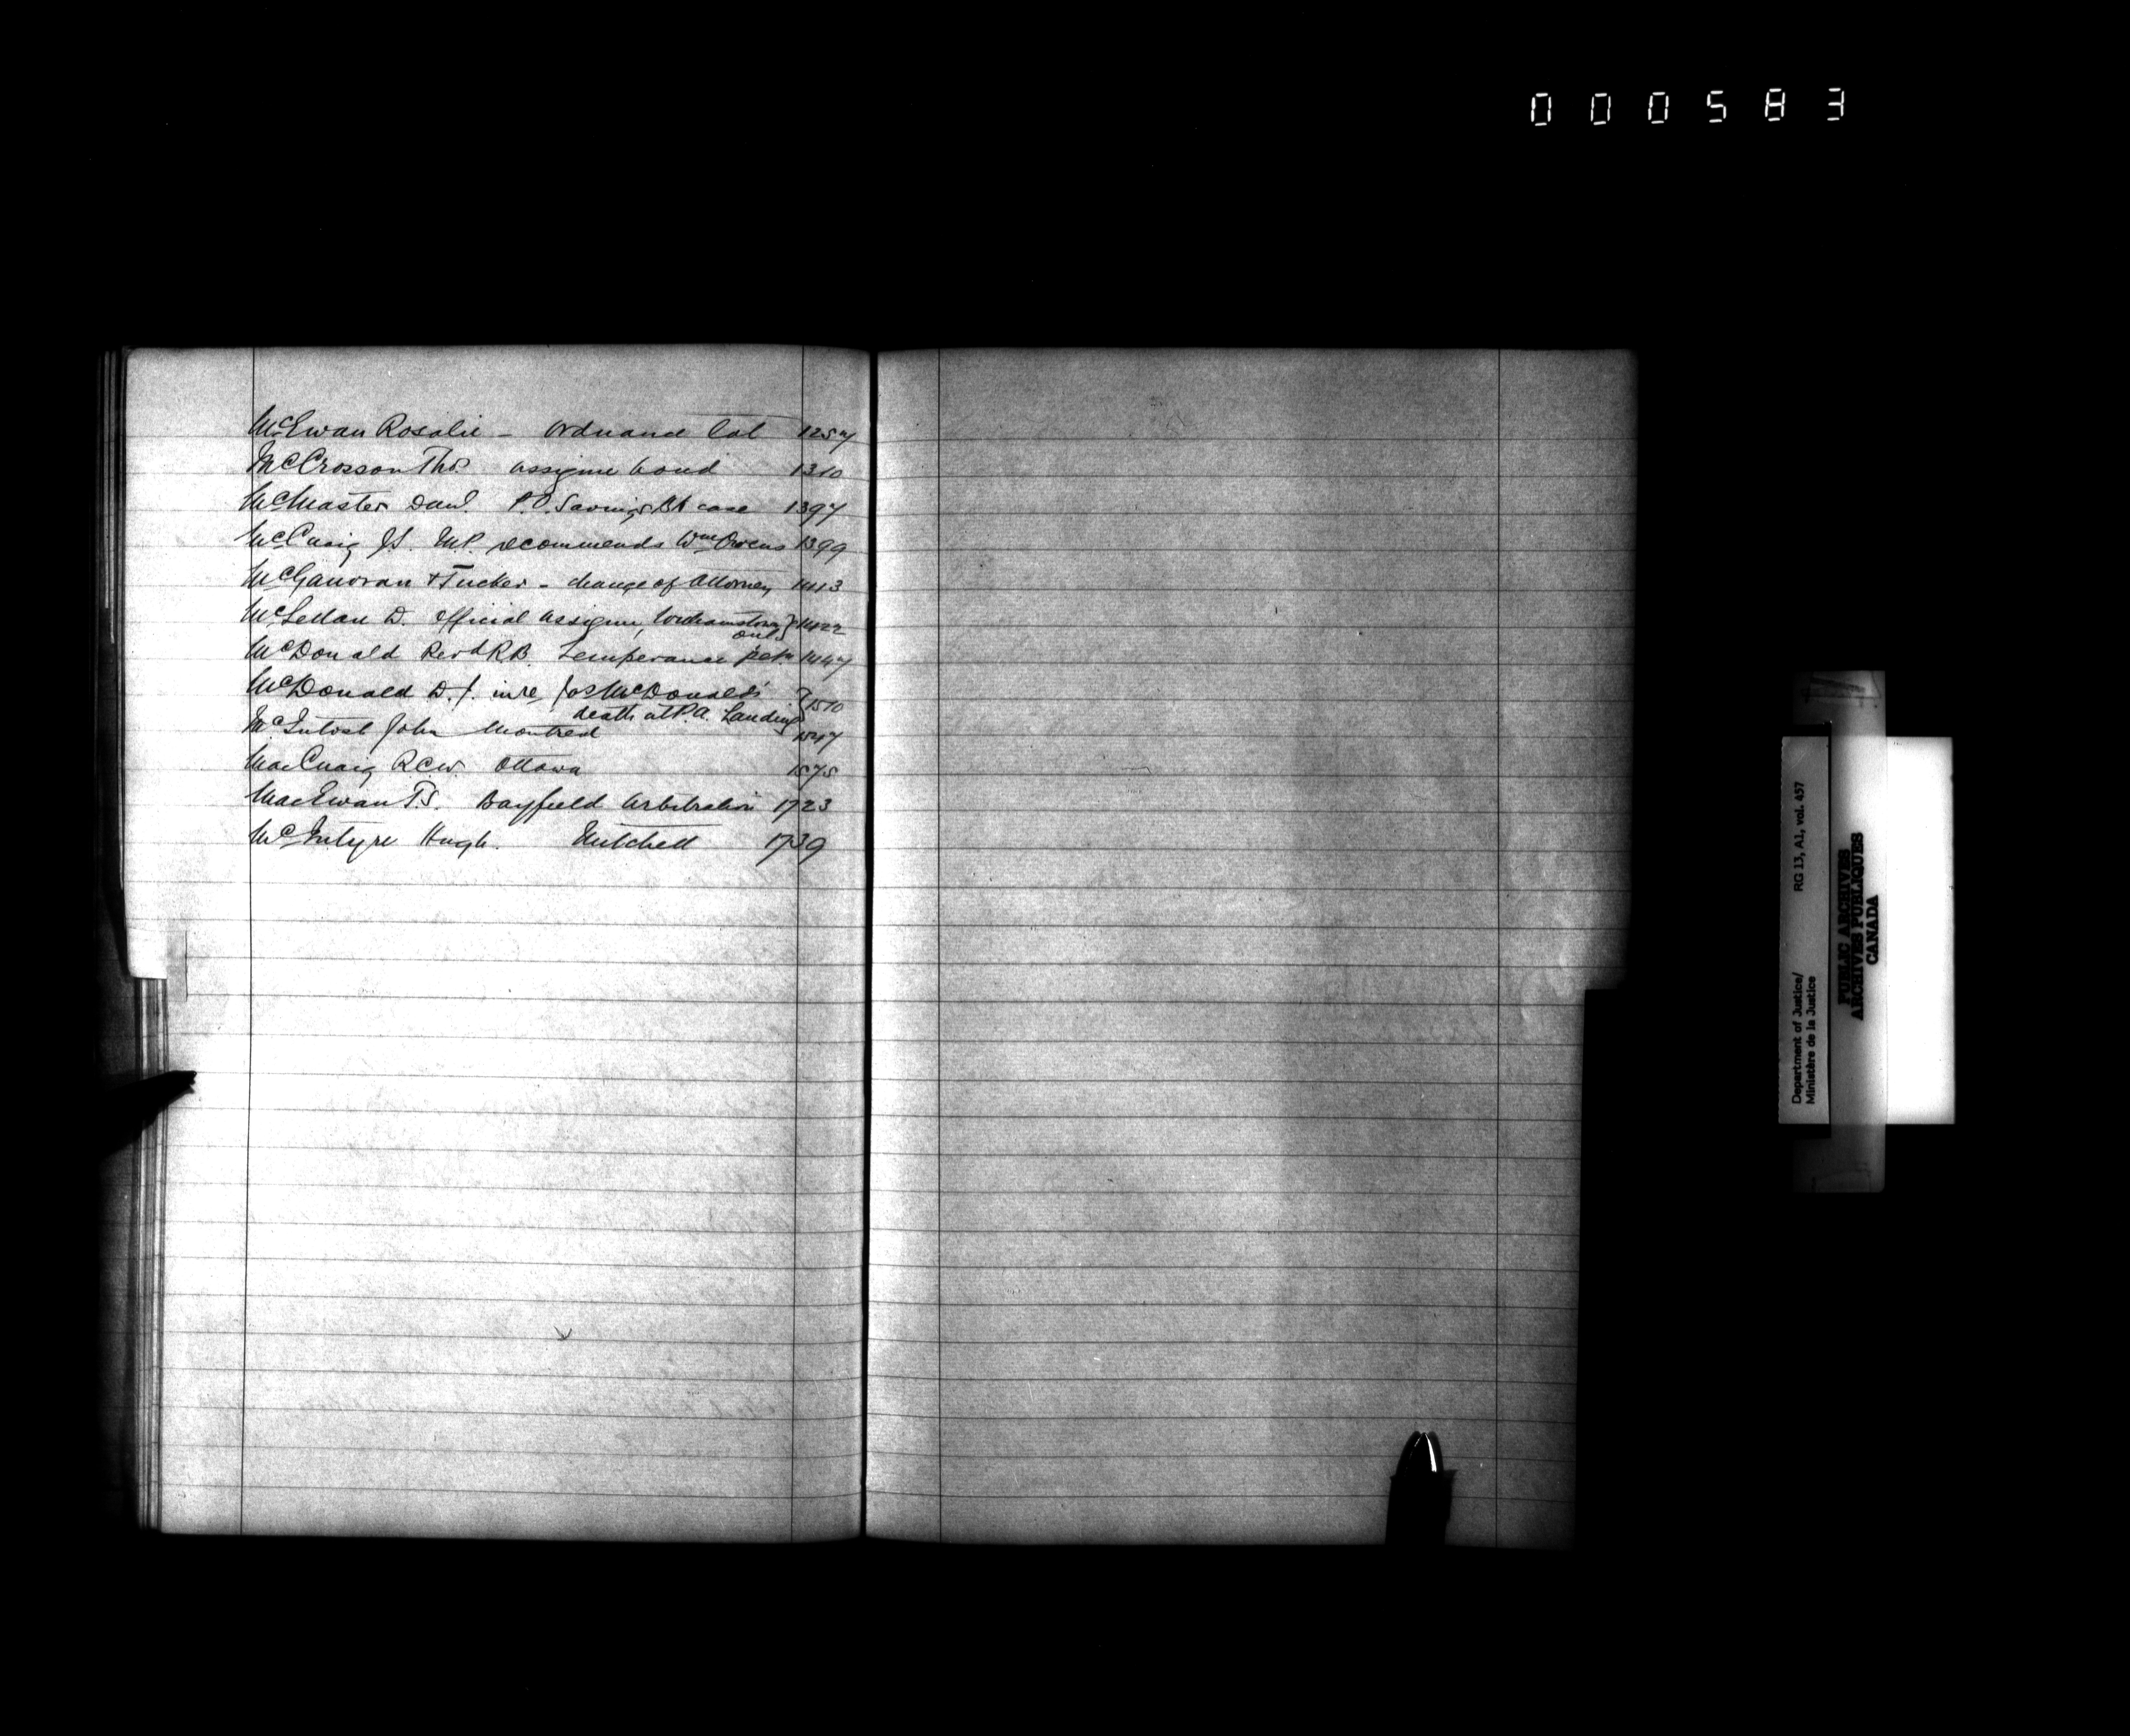 000583
McEwan Rosalie - Ordnance Lot 1257
McCrosson Thos. assignee bond 1310
McMaster Danl. P.O. Savings Bk case 1397
McCuaig J.S. M.P. recommends Wm Owens 1399
McGanoran & Tucker - change of Attorney 1413
McLellan D. official assignee, Williamstown } 1422
Ont.
McDonald Revd R.B. Temperance petn 1447
McDonald D.J. in re Jas McDonald's } 1510
death at P.A. Landing
McIntosh John Montreal 1547
MacCuaig R.C.W. Ottawa 1575
MacEwan T.S. Bayfield Arbitration 1723
McIntyre Hugh. Mitchell 1739
Department of Justice/ RG 13, A1, vol. 457
Ministère de la Justice
PUBLIC ARCHIVES
ARCHIVES PUBLIQUES
CANADA